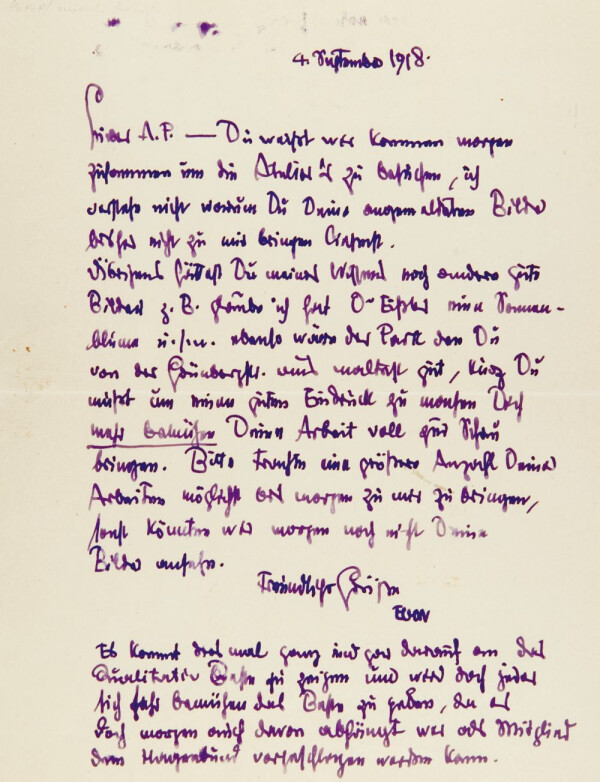 4. September 1918.
Lieber A. P. — Du weißt wir kommen morgen
zusammen um die Atelier's zu besuchen, ich
verstehe nicht warum Du Deine angemeldeten Bilder
bisher nicht zu mir bringen
Übrigens hättest Du meines Wissens noch andere gute
Bilder z. B. glaube ich hat Dr Eißler eine Sonnen-
blume u.s.w. ebenso wäre der Park den Du
von der Grünbergstr. aus maltest gut, kurz Du
mußt um einen guten Eindruck zu machen Dich
mehr bemühen Deine Arbeit voll zur Schau
bringen. Bitte trachte eine größere Anzahl Deiner
Arbeiten möglichst bis morgen zu mir zu bringen,
sonst könnten wir morgen noch nicht Deine
Bilder ansehn.
Freundliche Grüße
Es kommt diesmal ganz und gar darauf an das
Qualitativ Beste zu zeigen und wird doch jeder
sich sehr bemühen das Beste zu geben, da es
doch morgen auch davon abhängt wer als Mitglied
dem Hagenbund vorgeschlagen werden kann.